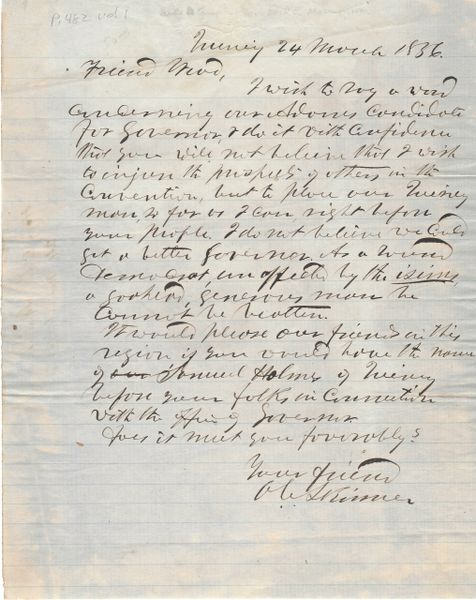 P. 482 vol 1
Quincy 24 March 1836.
Friend
I wish to say a word
concerning our Adams candidate
for Governor, & do it with confidence
that you will not believe that I wish
to injure the prospects of others in the
Convention, but to place our Quincy
man, so far as I can, right before
your people. I do not believe we could
get a better Governor. As a sound
Democrat, unaffected by the isims,
a good, generous man he
cannot be beaten.
It would please our friends in this
region if you would have the name
of our Samuel Holmes of Quincy
before your folks in Connection
with the office of Governor.
Does it meet you favorably?
Your friend
O C Skinner